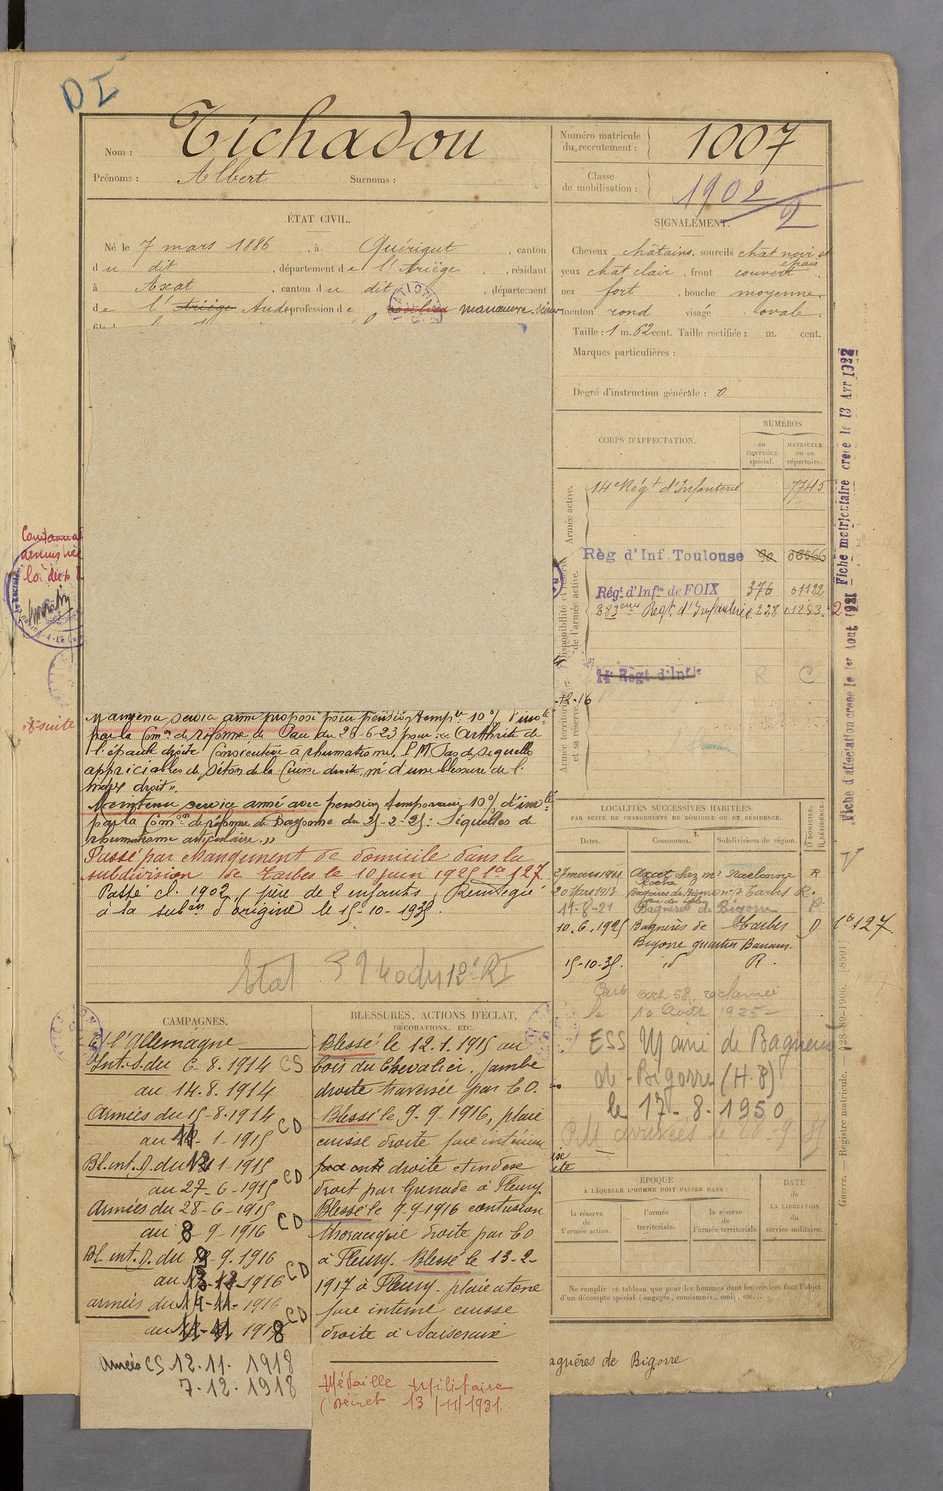 DI
Nom : Tichadou
Prénoms : Albert Surnoms :
Numéro matricule du recrutement : 1007
Classe de mobilisation : 1902
2
ÉTAT CIVIL.
Né le 7 mars 1886, à Quérigut, canton
du dit, département de l'Ariège, résidant
à Axat, canton du dit, département
de l'Ariège Aude profession de manœuvre
SIGNALEMENT.
Cheveux châtains, sourcils chat
épais
yeux chat clair, front couvert
nez fort, bouche moyenne
menton rond visage ovale.
Taille : 1 m. 62 cent. Taille rectifiée : m. cent.
Marques particulières :
Degré d'instruction générale : 0
CORPS D'AFFECTATION.
NUMÉROS
au contrôle spécial.
matricule ou au répertoire.
Armée active.
14e Régt d'Infanterie 7745
Disponibilité et réserve de l'armée active.
Rég d'Inf. Toulouse
Régt d'Infie de FOIX 376 01122
383eme Régt d'Infanterie
Armée territoriale et sa réserve.
14e Régt d'Infie R C
-12-16
Fiche matriculaire créée le 13 Avr 1922
Fiche d'affectation créée le 1er Aout 1921
loi du
suite
Maintenu service armé proposé pour pension tempre 10% d'invté
par la Comon de réforme de Pau du 28-6-23 pour : "Arthrite de
l'épaule droite consécutive à rhumatisme. P.M. Pas de séquelle
appréciables de séton de la cuisse droite, ni d'une blessure de l'
index droit".
Maintenu service armé avec pension temporaire 10% d'invté
par la Comon de réforme de Bayonne du : Séquelles de
rhumatisme articulaire."
Passé par changement de domicile dans la
subdivision de Tarbes le 10 juin 1925 Ca 127
Passé cl. 1902, père de 2 enfants,
à la subon d'origine le 15-10-1935
Etat
12e RI
LOCALITÉS SUCCESSIVES HABITÉES
PAR SUITE DE CHANGEMENTS DE DOMICILE OU DE RÉSIDENCE.
Dates. Communes. Subdivisions de région. D. DOMICILE. R. RÉSIDENCE.
Axat chez Mr Narbonne R
20 Mars 1913 Bagnères de Bigorre Tarbes R.
19-8-21 Bagnères de Bigorre
10.6.1925 Bagnères de Tarbes D Ca 127
Bigorre quartier
15-10-35. id R.
art 58, réclamée
le 10 Août 1925
ESS Mairie de Bagnères
de-Bigorre (H.P)
le 17-8-1950
PM arrivées le
CAMPAGNES.
C/ l'Allemagne
Int. S. du 6.8.1914 CS
au 14.8.1914
Armées du 15-8-1914 CD
au 12-1-1915
Bl. int. D. du 12 1 1915 CD
au 27-6-1915
Armées du 28-6-1915 CD
au 8 9 1916
Bl. int. D. du 9-9.1916 CD
au 13-11-1916
armées du 14-11-1916 CD
au 11-11 1918
Armées CS 12.11.1918
7.12.1918
BLESSURES, ACTIONS D'ÉCLAT,
DÉCORATIONS, ETC.
Blessé le 12.1.1915 au
bois du Chevalier. Jambe
droite traversée par EO.
Blessé le 9-9-1916, plaie
cuisse droite face intérieure
face ant droite et index
droit par Grenade à Fleury.
Blessé le 9-9-1916 contusion
thoracique droite par EO
à Fleury. Blessé le 13-2-
1917 à Fleury. plaie atone
face intime cuisse
droite à
Médaille Militaire
(Décret 13/11/1931.
ÉPOQUE
À LAQUELLE L'HOMME DOIT PASSER DANS :
la réserve de l'armée active.
l'armée territoriale.
la réserve de l'armée territoriale
DATE de LA LIBÉRATION du service militaire.
Ne remplir ce tableau que pour les hommes dont les services font l'objet
d'un décompte spécial (engagés, condamnés, omis, etc.).
agnères de Bigorre
Guerre. — Registre matricule.